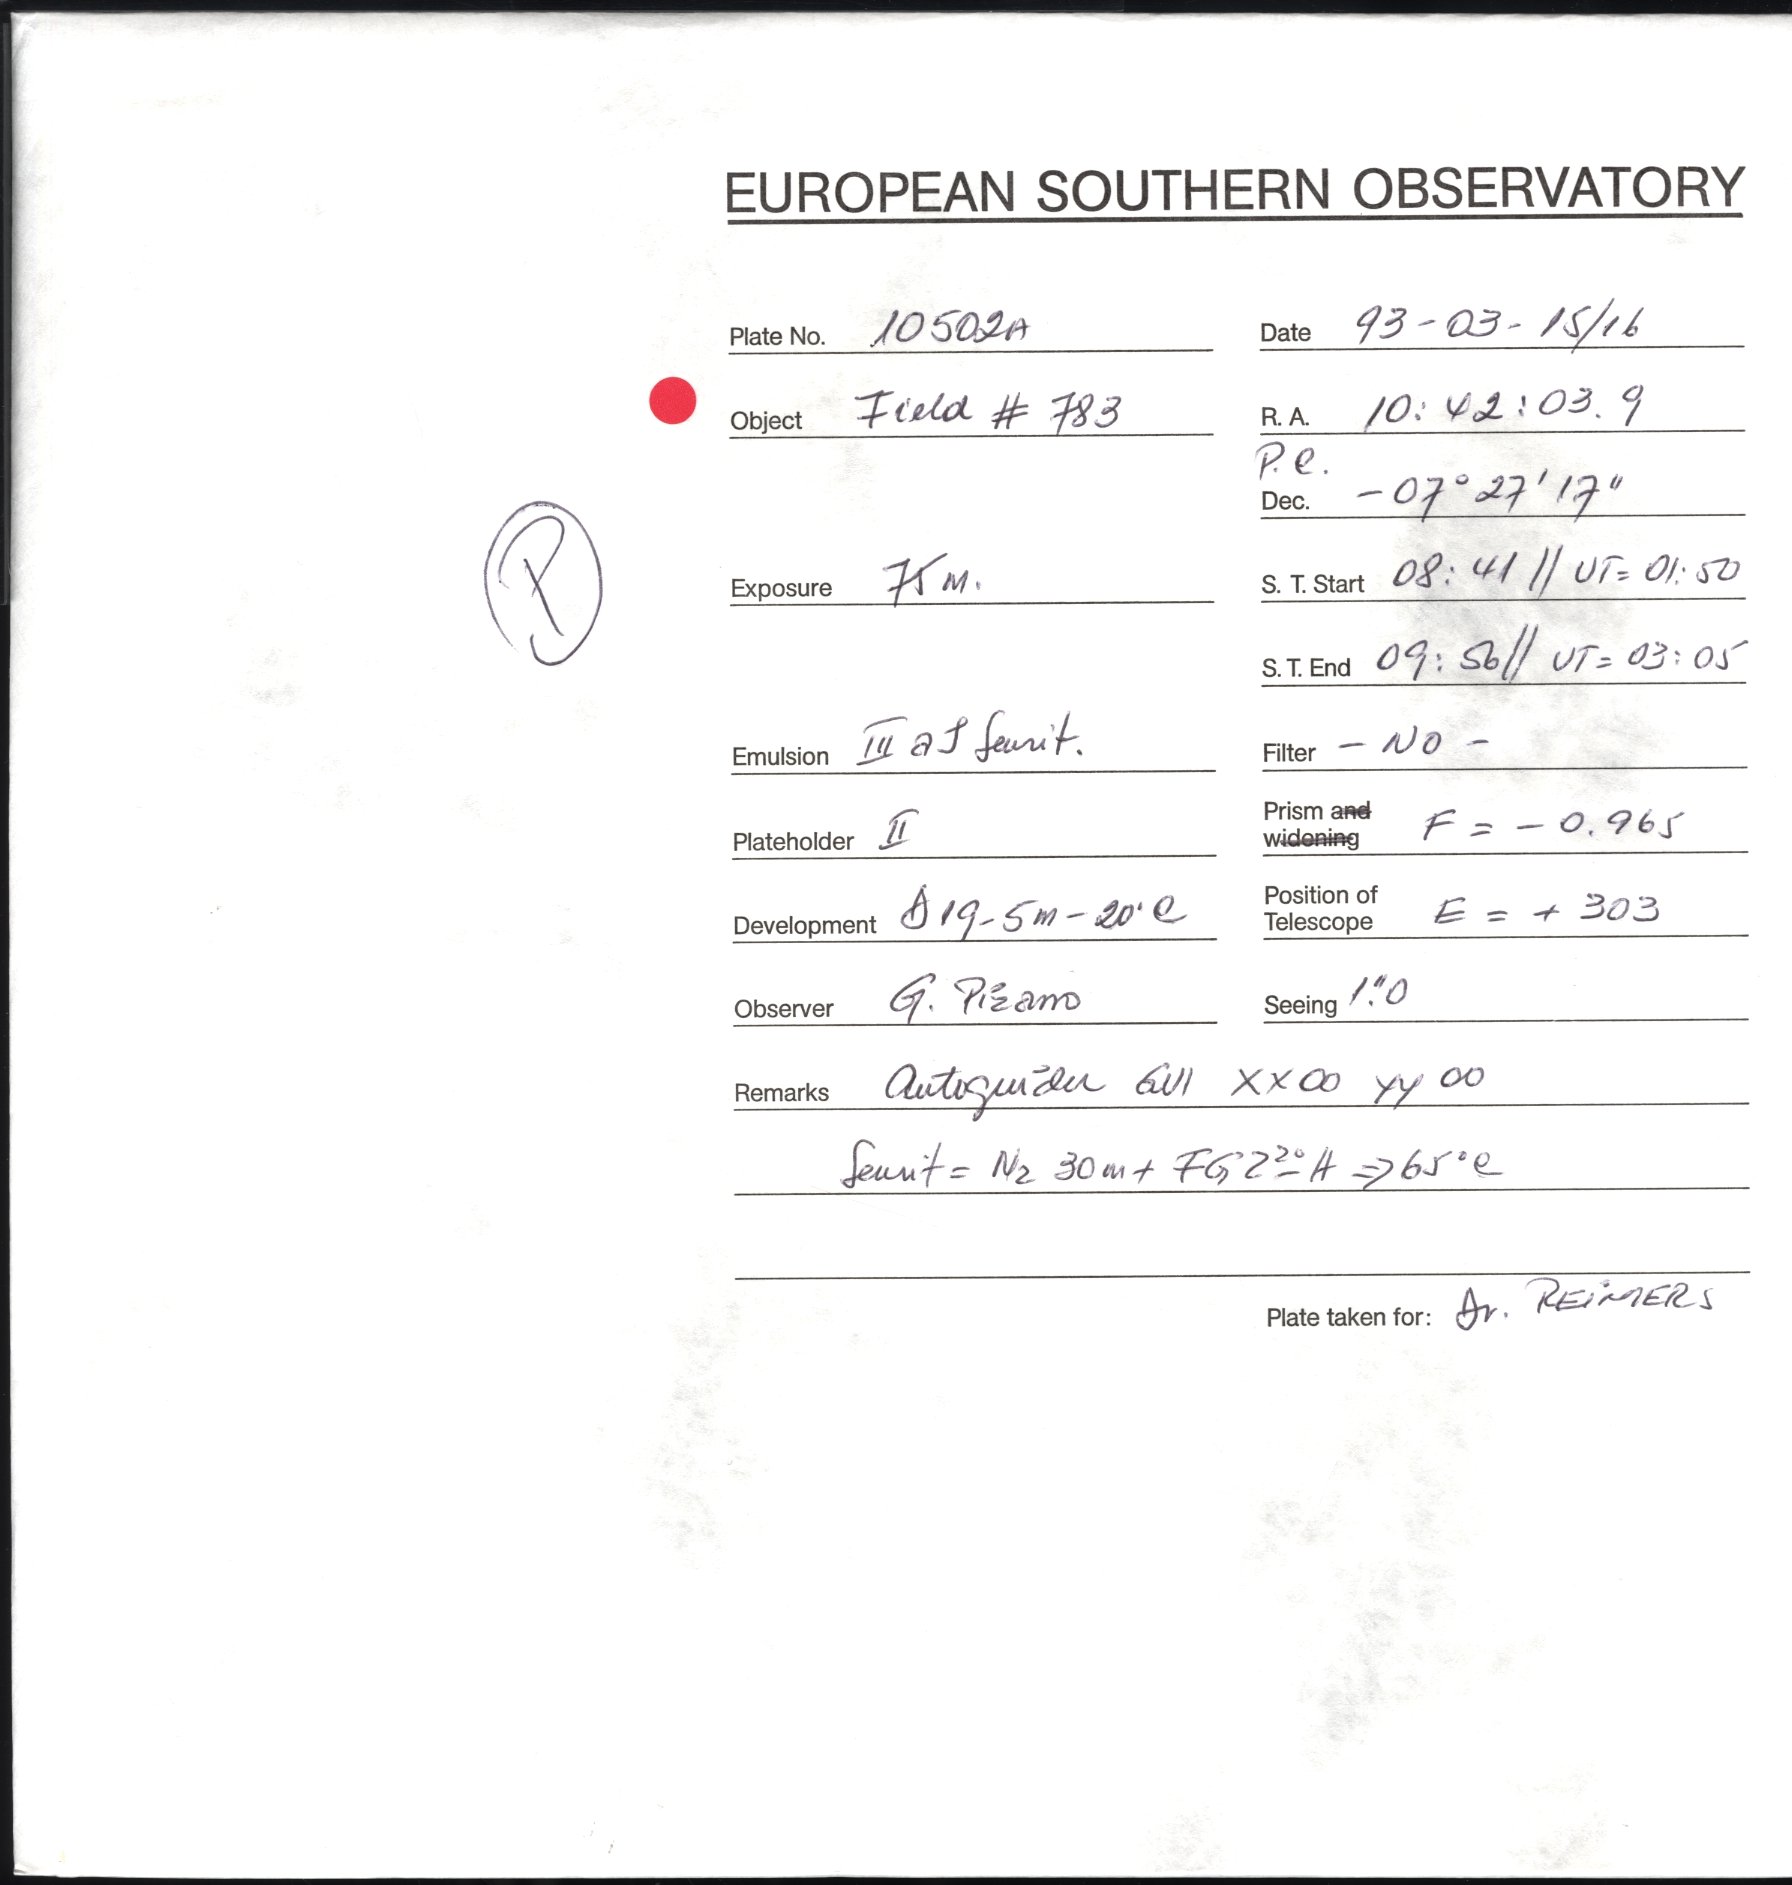 EUROPEAN SOUTHERN OBSERVATORY
Plate No. 10502A Date 93-03-15/16
Object Field # 783 R. A. 10:42:03.9
P.C.
Dec. -07° 27' 17"
Exposure 75m. S. T. Start 08:41 // UT= 01:50
S. T. End 09:56 // UT= 03:05
Emulsion III aJ Sensit. Filter - NO -
Plateholder II Prism and widening F = - 0.965
Development D19-5m-20°C Position of Telescope E = + 303
Observer G. Pizarro Seeing 1."0
Remarks Autoguider XX00 YY00
Sensit = N2 30m + FG 2 H => 65°C
Plate taken for: Dr. REIMERS
P